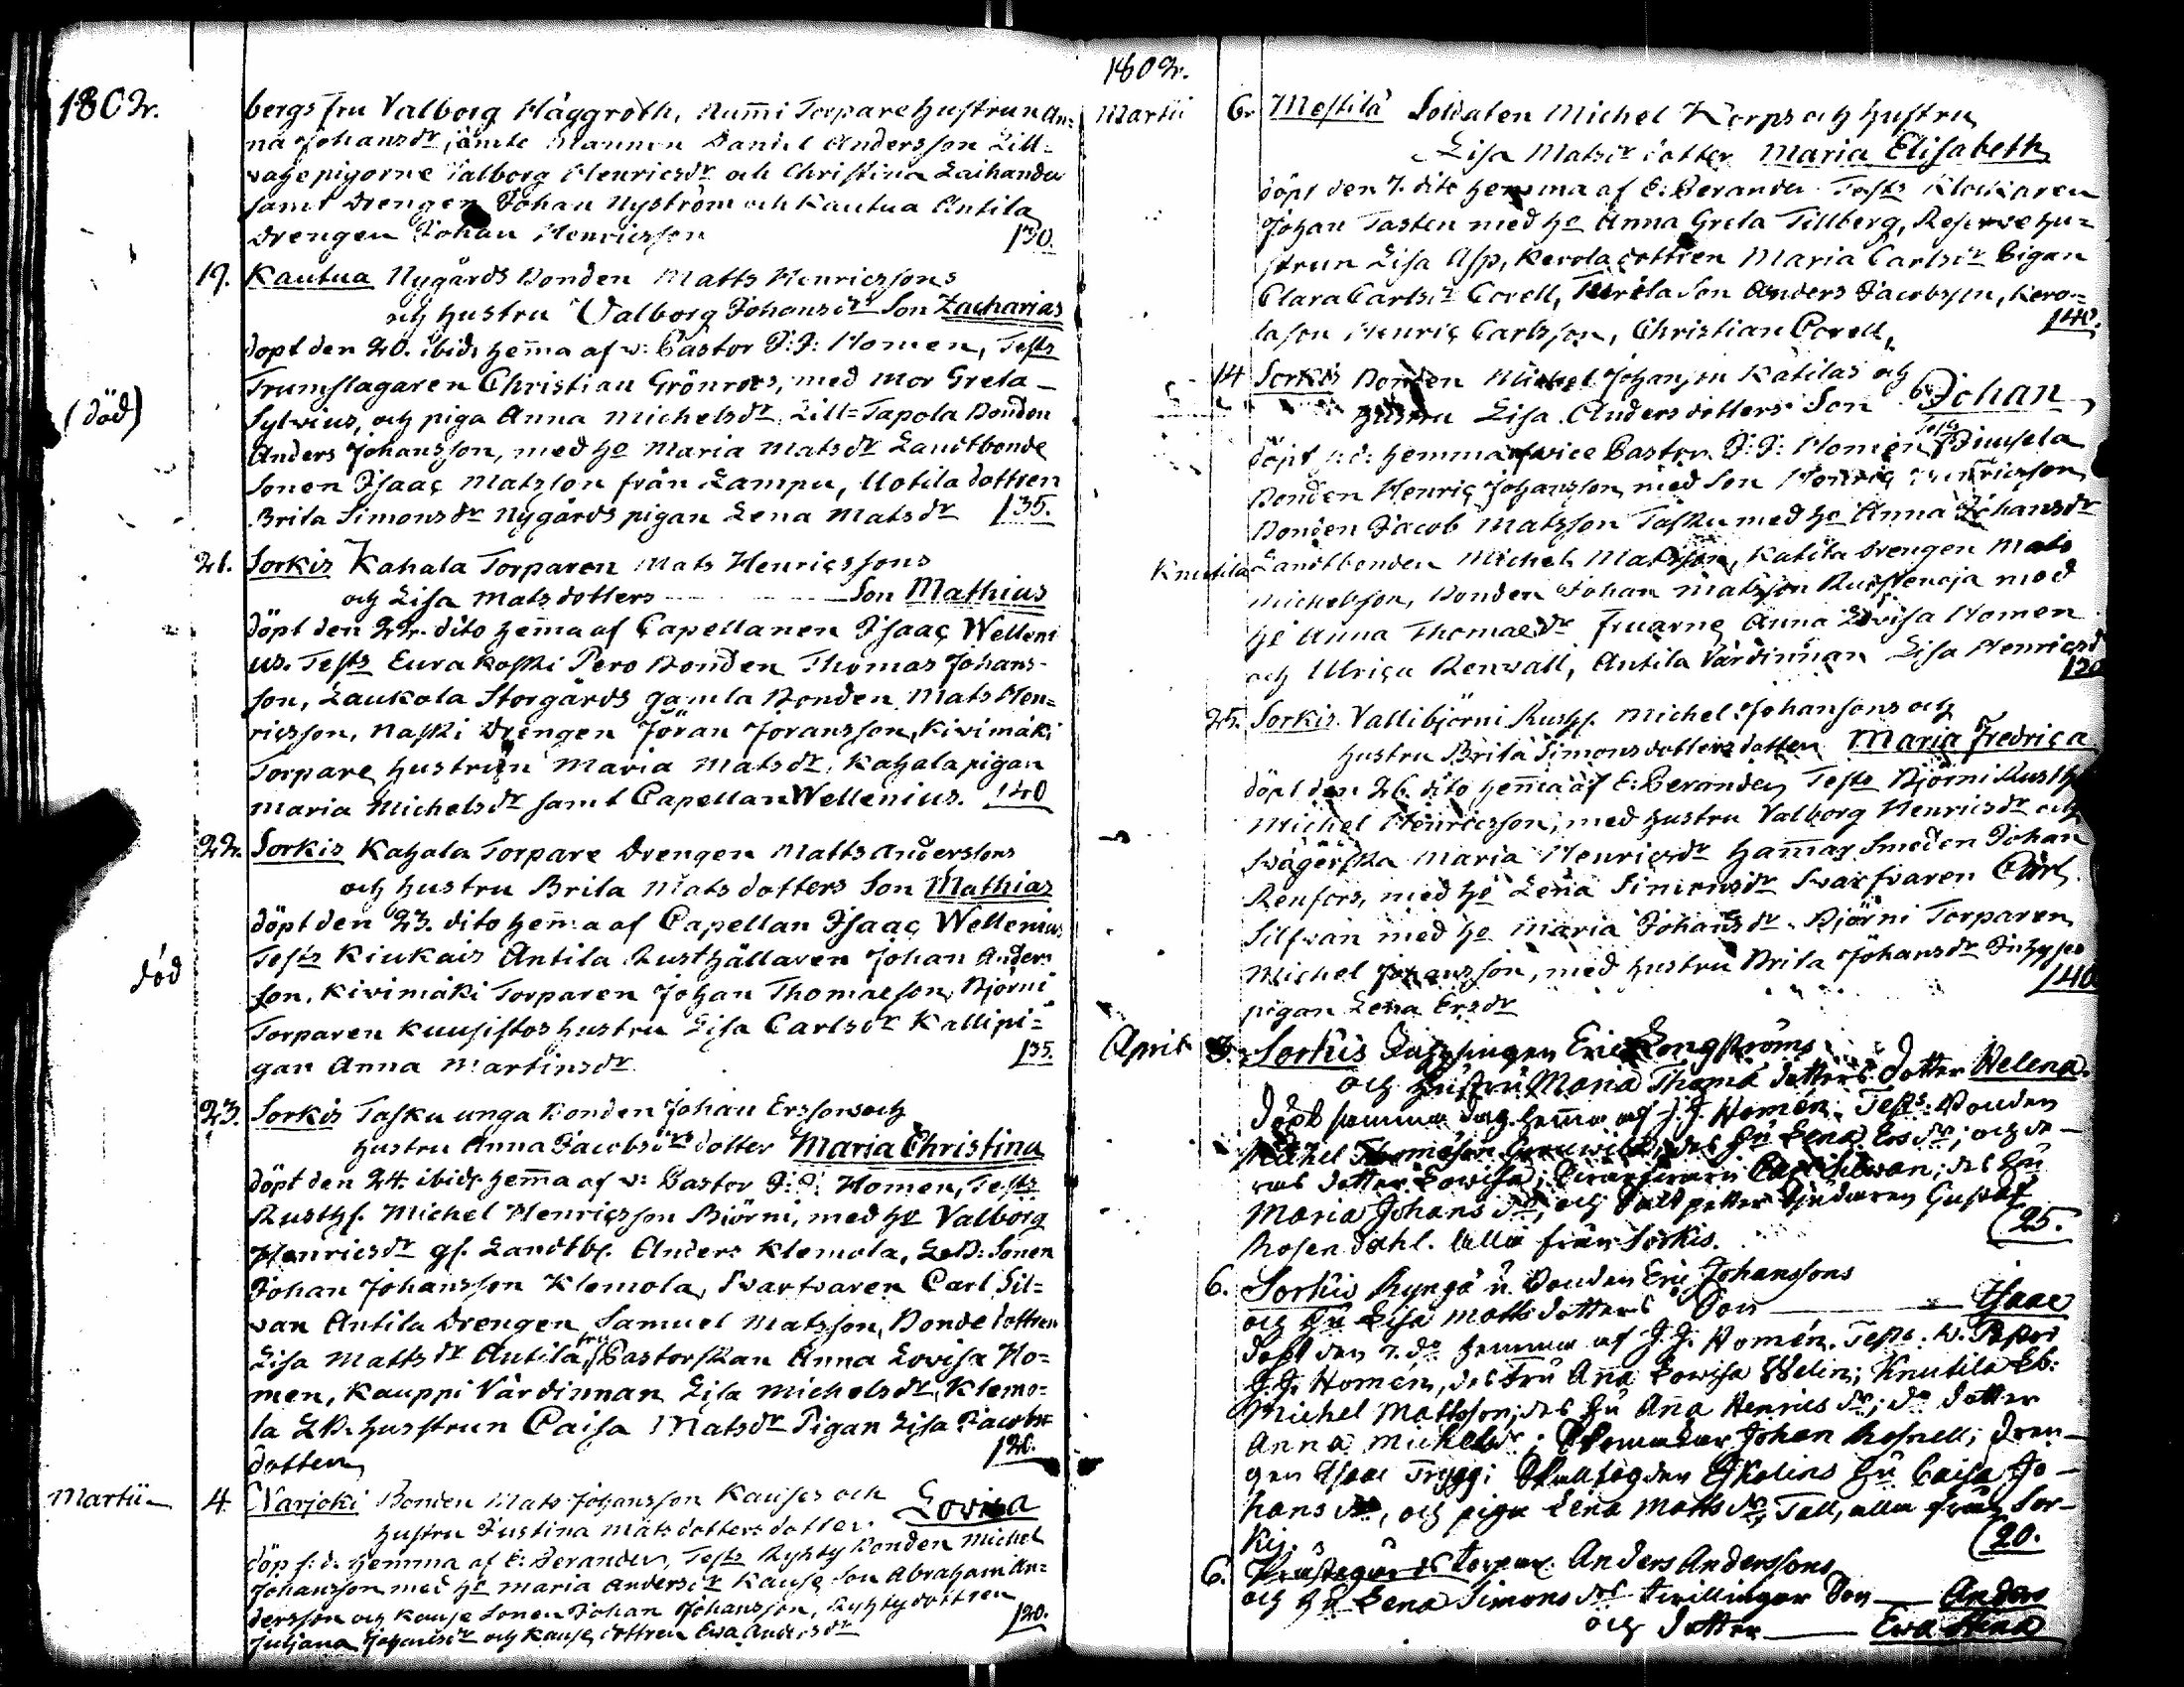 1802.
bergs fru Valborg Häggroth, Num̅i Torpare hustrun An=
na Johansdr, jämte Mannen Daniel Andersson Lill=
vahe pigorne Valborg Henricsdr och Christina Laihanda
samt Drengen Johan Nyström och Kautua Antila
Drengen Johan Henricsson 130.
19. Kautua Nygårds Bonden Matts Henricssons
och hustru Valborg Johansdrs Son Zacharias
döpt den 20. ibid: hem̅a af v: Pastor J: J: Homen, Tests
Trumslagaren Christian Grönroos, med mor Greta
(död)
Sylvius, och piga Anna Michelsdr Lill=Tapola Bonden
Anders Johansson, med he Maria Matsdr Landtbonde
Sonen Isaac Matsson från Lampu, Uotila dottren
Brita Simonsdr Nygårds pigan Lena Matsdr 135.
21. Sorkis Kahala Torparen Mats Henricssons
och Lisa Matsdotters Son Mathius
döpt den 22. dito hem̅a af Capellanen Isaac Welleni
us. Tests Eura Koski Pero Bonden Thomas Johans-
son, Laukola Storgårds gamla Bonden Mats Hen=
ricsson, Naski Drengen Jöran Jöransson, Kivimäki
Torpare hustrun Maria Matsdr, Kahala pigan
Maria Michelsdr samt Capellan Wellenius. 140
22. Sorkis Kahala Torpare Drengen Matts Anderssons
och hustru Brita Matsdotters Son Mathias
döpt den 23. dito hem̅a af Capellan Isaac Wellenius
Tests Kiukais Antila Rusthållaren Johan Anders
död
son, Kivimäki Torparen Johan Thomaeson, Björni
Torparen Kuusistos hustru Lisa Carlsdr Kallipi=
gan Anna Martinsdr 135.
23. Sorkis Tasku unga Bonden Johan Erssons och
hustru Anna Jacobsdrs dotter Maria Christina
döpt den 24. ibid: hem̅a af v: Pastor J: J: Homen, Tests
Rusthf. Michel Henricsson Björni, med he Valborg
Henricsdr gf. Landtbf. Anders Klemola, L:B: Sonen
Johan Johansson Klemola, Svarfvaren Carl Sil=
van Antila Drengen Samuel Matsson, Bonde dottren
Lisa Mattsdr Antila, fru Pastorskan Anna Lovisa Ho=
men, Kauppi Värdinnan Lisa Michelsdr, Klemo=
la L.B. hustrun Caisa Matsdr Pigan Lisa Jacobs
dotter 120.
Martii 4. Narjoki Bonden Mats Johansson Kauses och Lovisa
hustru Justina Matsdotters dotter
döp s: d: hemma af E: Berander, Tests Ryhty Bonden Michel
Johansson med he Maria Andersdr Kause Son Abraham An=
dersson och Kause Sonen Johan Johansson, Ryhty dottren
Juliana Johansdr och Kause dottren Eva Andersdr 120.
1802.
Martii 6. Mestilä Soldaten Michel Korps och hustru
Lisa Matsdrs dotter Maria Elisabeth
döpt den 7. dito hemma af E: Berander Tests Klockaren
Johan Tasten med he Anna Greta Tillberg, Reserve hu=
strun Lisa Asp, Kerola dottren Maria Carlsdr Pigan
Clara Carlsdr Corell, Kerola Son Anders Jacobsson, Kero=
la son Henric Carlsson, Christian Corell, 140.
14 Sorkis Bonden Michel Johansson Kätiläs och
hustru Lisa Andersdotters Son Johan
döpt s: d: hemma af vice Pastor J: J: Homen, Tests
Bonden Henric Johansson, med Son Henric Henricsson
Bonden Jacob Matsson Tasku med he Anna Johansdr
Knutila Landtbonden Michel Matsson, Kätilä Drengen Mats
Michelsson, Bonden Johan Matsson Ruskenoja med
he Anna Thomaedr Fruarne Anna Lovisa Homen
och Ulrica Renvall, Antila Värdinnan Lisa Henricsd
25. Sorkis Vallibjörni Rusthf. Michel Johanssons och
hustru Brita Simonsdotters dotter Maria Fredrica
döpt den 26. dito hem̅a af E: Berander Tests Björni Rusth
Michel Henricsson, med hustru Valborg Henricsdr och
Svägerska Maria Henricsdr Ham̅ar Smeden Johan
Renfors, med he Lena Simonsdr Svarfvaren Carl
Silfvan med he Maria Johansdr, Björni Torparen
Michel Johansson, med hustru Brita Johansdr Inhyses
pigan Lena Ersdr 140
April 3. Sorkis Inhysingen Eric Longströms
och hustru Maria Thoma dotters dotter Helena.
Döpt samma dag hem̅a af J. J. Homén. Tests: Bonden
Michel Thomäson, des hu Lena Ersdr; och de-
ras dotter Lowisa; Swarfwarn Carl Silwan; des hu
Maria Johansdr; och Saltpetter Sjudaren Gustaf
Rosendahl. alla från Sorkis. (25.
6. Sorkis Ryngö n. Bonden Eric Johanssons
och hu Lisa Mattsdotters Son Isaac
Döpt den 7. do hemma af J. J. Homén. Tests: w. Pastor
J. J. Homén, des Fru Anna Lowisa Welin; Knutila Lb:
Michel Mattsson; des hu Anna Henricsdr; do dotter
Anna Michelsdr; Johan Rosnell; Dren-
gen Isaac Trygg; Ekelins hu Caisa Jo-
hansdr, och piga Lena Mattsdr, Tall, alla från Sor-
kis. (20.
6. Prästegårds torpar. Anders Anderssons
och hu Lena Simonsdrs twillingar Son Anders
och dotter Ewa Stina